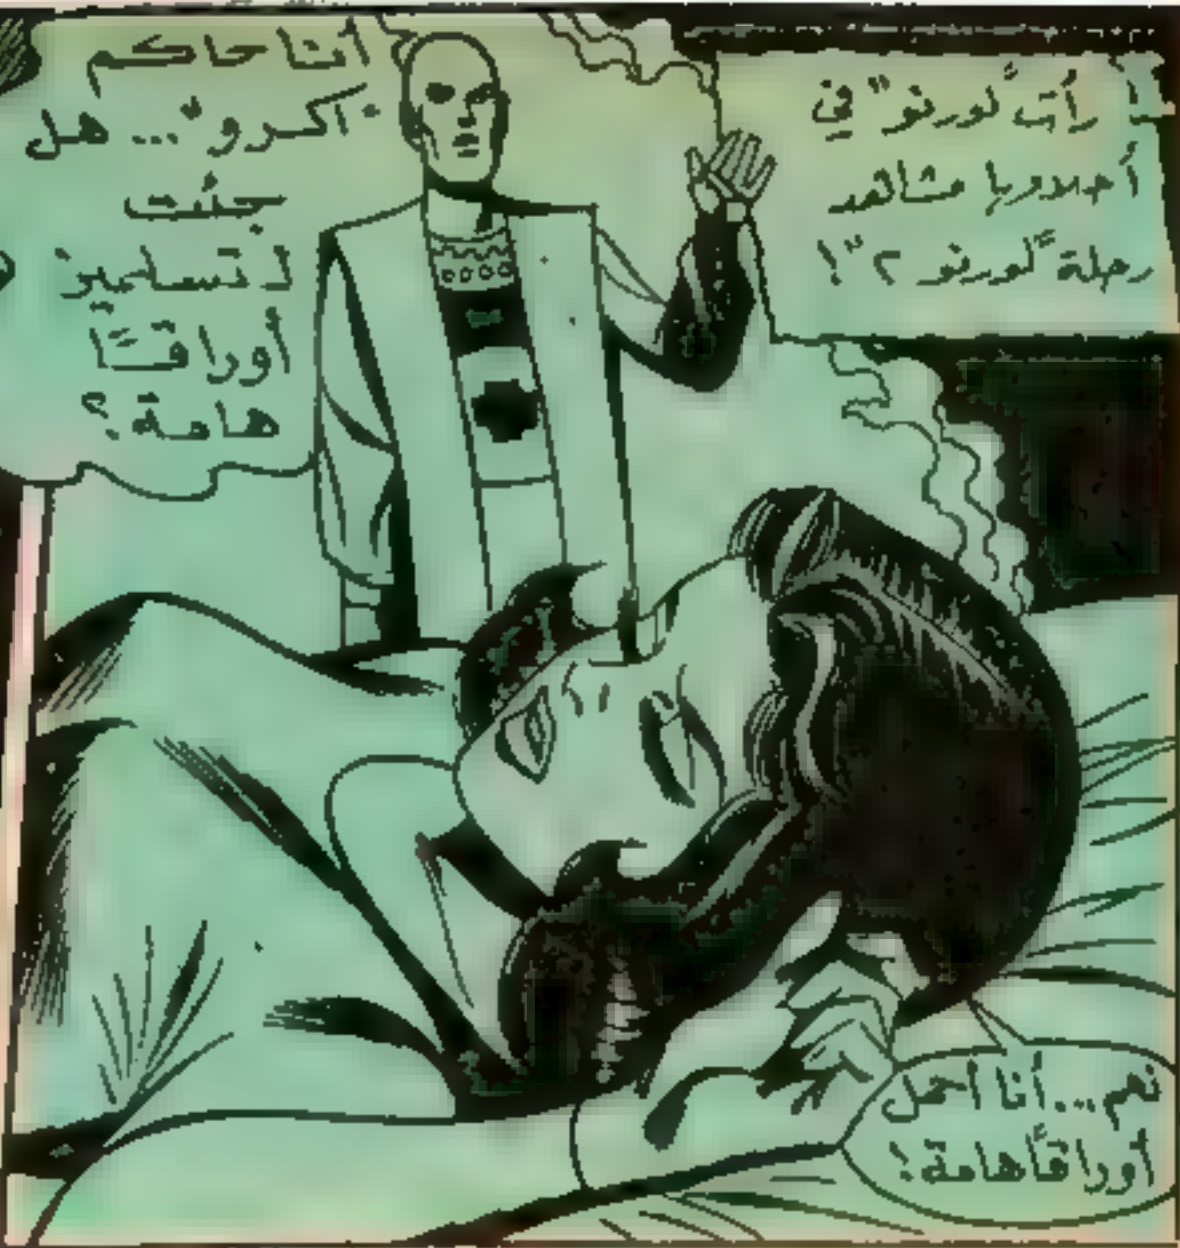 رأت "لورنو" في
أحلامها مشاهد
رحلة "لورنو ٢"!
أنا حاكم
"اكرو"... هل
جئت
لتسلميني
أوراقًا
هامة؟
نعم... أنا أحمل
أوراقًا هامة!